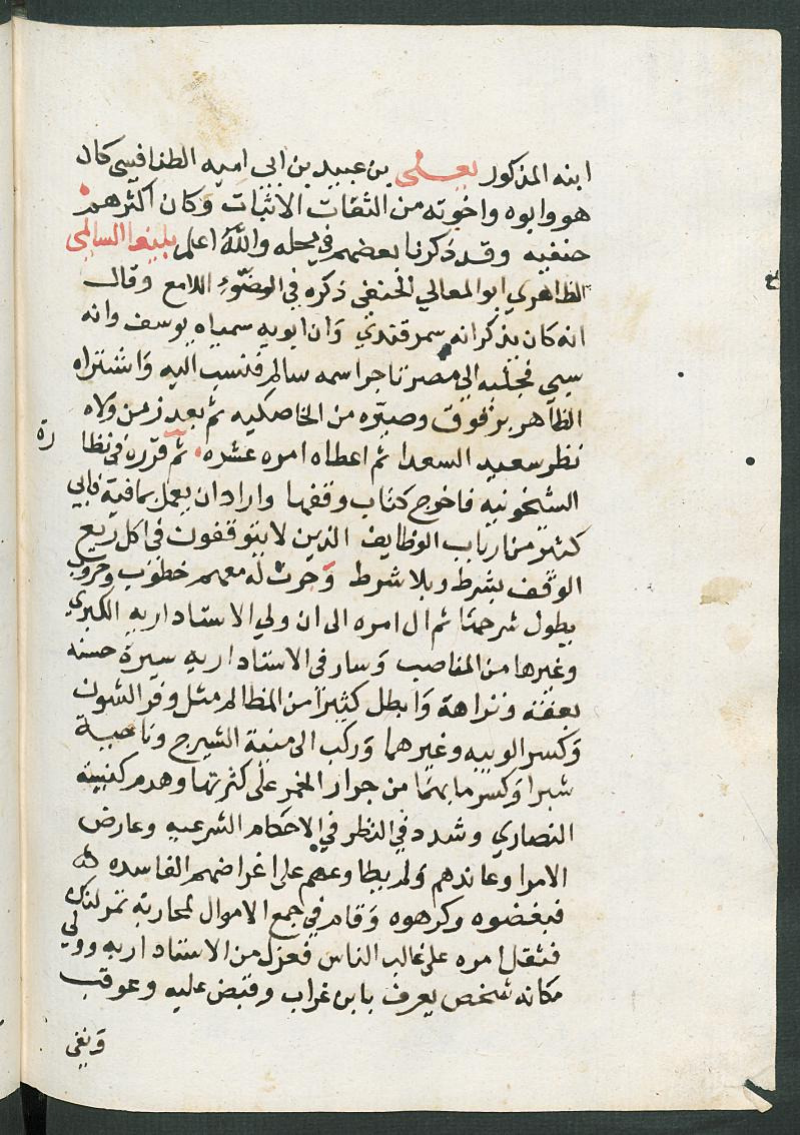 ابنه المذكور يعلى بن عبيد بن ابى اميه الطنافسي كان
هو وابوه واخوته من الثقات الاثبات وكان اكثرهم
حنفيه وقد ذكرنا بعضهم في محله والله اعلم يلبغا السالمى
الظاهري ابو المعالي الحنفي ذكره في الضوء اللامع وقال
انه كان يذكر انه سمرقندي وان ابويه سمياه يوسف وانه
سبي فجلبه الي مصر تاجر اسمه سالم فنسب اليه واشتراه
الظاهر برقوق وصيره من الخاصكيه ثم بعد زمن ولاه
نظر سعيد السعدا ثم اعطاه امره عشره ثم قرره في نظا
رة
الشيخونيه فاخرج كتاب وقفها واراد ان يعمل بمافيه فابي
كثير من ارباب الوظايف الذين لا يتوقفون في اكل ريع
الوقف بشرط وبلا شرط وجرت له معهم خطوب وحروب
يطول شرحها ثم ال امره الى ان ولي الاستاداريه الكبري
وغيرها من المناصب وسار في الاستاداريه سيرة حسنه
بعفة ونزاهة وابطل كثيرا من المظالم مثل وفر الشون
وكسر الويبه وغيرهما وركب الى منية الشيرج وناحية
شبرا وكسر ما بهما من جرار الخمر على كثرتها وهدم كنيسة
النصاري وشدد في النظر في الاحكام الشرعيه وعارض
الامرا وعاندهم ولم يطاوعهم على اغراضهم الفاسده
فبغضوه وكرهوه وقام في جمع الاموال لمحاربة تمرلنك
فثقل امره على غالب الناس فعزل من الاستاداريه وولي
مكانه شخص يعرف بابن غراب وقبض عليه وعوقب
ونفي